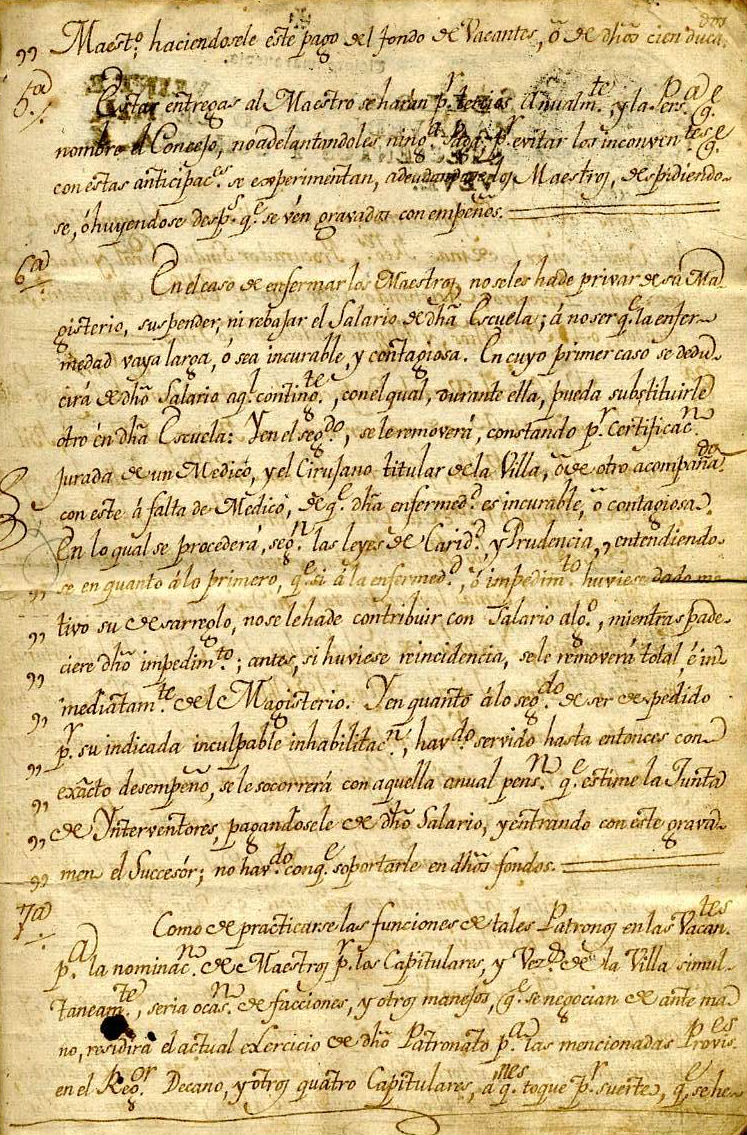 Maestº; haciendosele este pago del fondo de Vacantes, ó de dhõs cien duca-dos
5ª Estas entregas al Maestro se harán pr. tercios Anualmte. y la Persª. qe.
nombre el Concejo, no adelantandoles ningª. pagª. pr. evitar los inconventes. qe.
con estas anticipaces. se experimentan, adeudandose los Maestros, despidiendo-
se, ó huyendose desps. qe. se vén gravados con empeños.
6ª En el caso de enfermar los Maestros, no se les ha de privar de su Ma-
gisterio, suspender, ni rebajar el Salario de dhã Escuela; á no ser qe. la enfer-
medad vaya larga, ó sea incurable, y contagiosa. En cuyo primer caso se dedu-
cirá de dhõ Salario aql. continte., con el qual, durante ella, pueda substituirle
otro en dhã Escuela: Y en el segdo., se le removerá, constando pr. certificacn.
jurada de un Medico, y el Cirujano titular de la Villa, ó de otro acompañado
con este á falta de Medico, de qe. dhã enfermedd. es incurable, ó contagiosa.
En lo qual se procederá, segn. las leyes de Caridd. y Prudencia, entendiendo-
se en quanto á lo primero, qe. si á la enfermedd. ó impedimto. huviese dado mo-
tivo su desarreglo, no se le ha de contribuir con Salario algº., mientras pade-
ciere dhõ impedimto.; antes, si huviese reincidencia, se le removerá total, é in-
mediatamte. del Magisterio. Y en quanto á lo segdo. de ser despedido
pr. su indicada inculpable inhabilitacn., havdo. servido hasta entonces con
exâcto desempeño, se le socorrerá con aquella anual pensn. qe. estime la Junta
de Ynterventores, pagandosele de dhõ Salario, y entrando con este grava-
men el Succesór; no havdo. conqe. soportarle en dhõs fondos.
7ª Como de practicarse las funciones de tales Patronos en las Vacantes.
pª. la nominacn. de Maestros pr. los Capitulares, y Vezs. de la Villa simul-
taneamte., seria ocasn. de facciones, y otros manejos, qe. se negocian de ante ma-
no, residirá el actual exercicio de dhõ Patronato pª. las mencionadas Provises.
en el Regor. Decano, y otros quatro Capitulares, á qnes. toque pr. suerte, qe. se he-